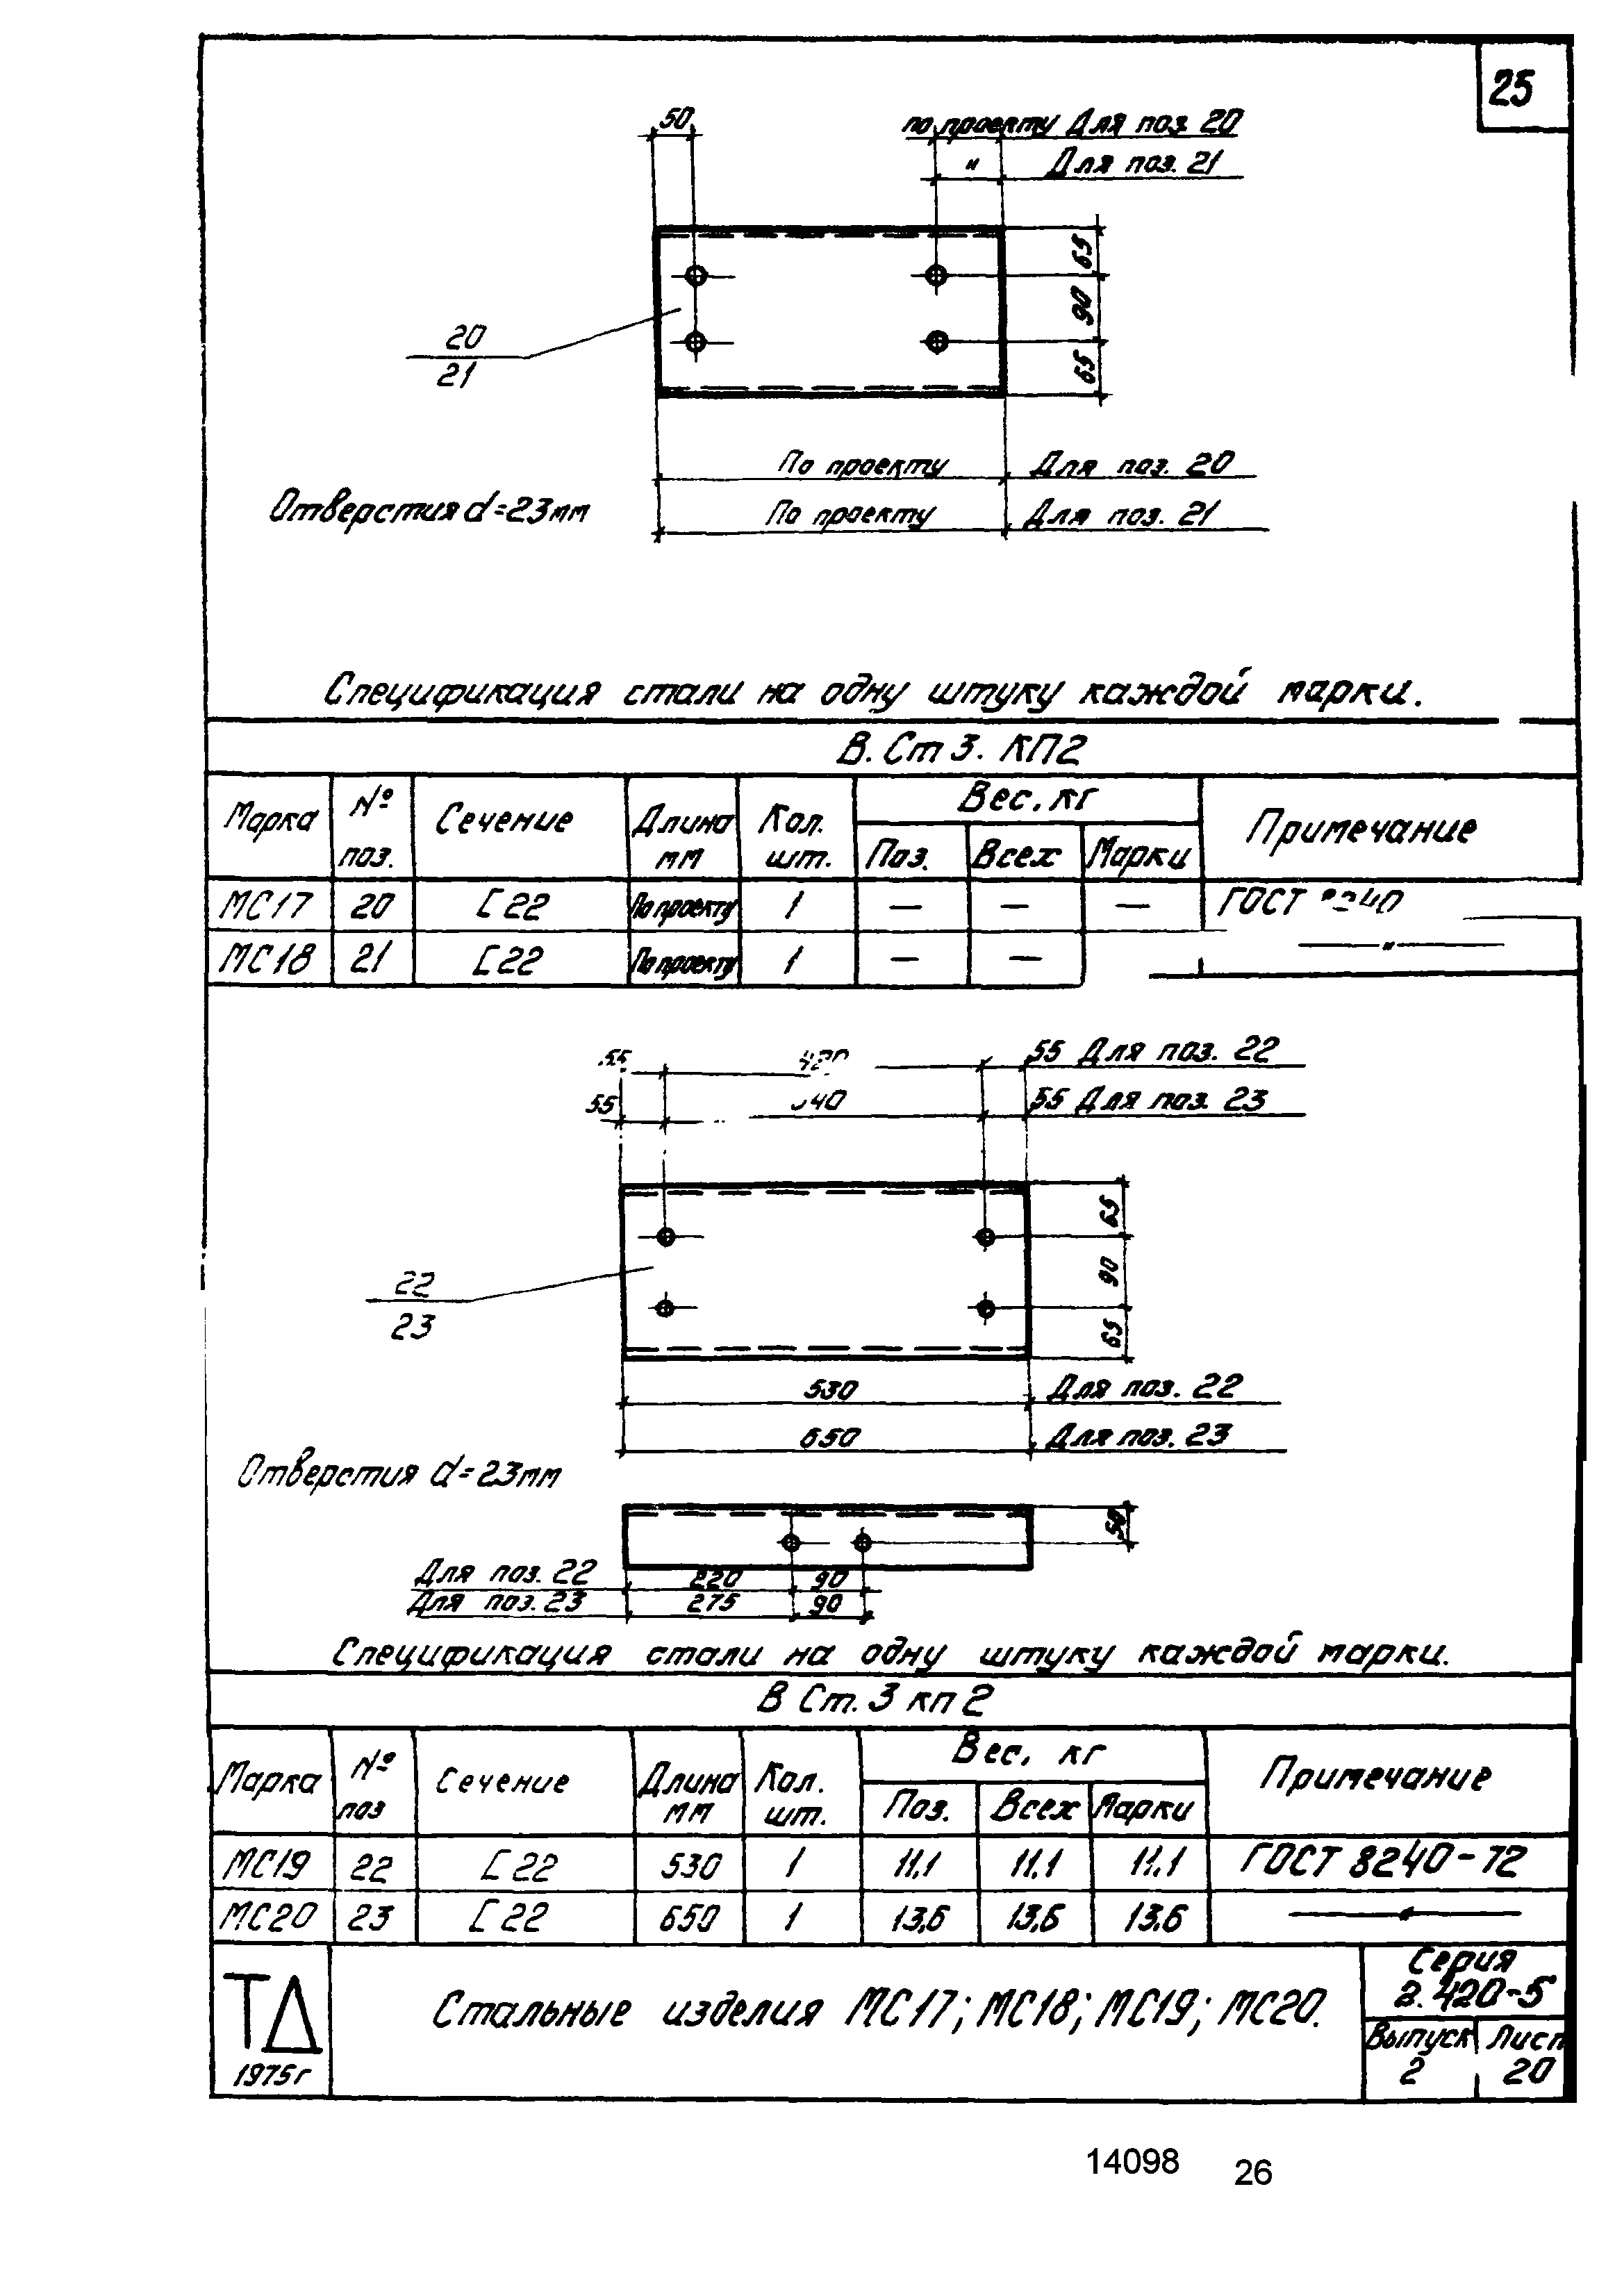 25
50
по проекту Для поз 20
" Для поз. 21
65
90
65
20
21
По проекту Для поз. 20
По проекту Для поз. 21
Отверстия d=23мм
Спецификация стали на одну штуку каждой марки.
В. Ст 3. КП2
Марка № поз. Сечение Длина мм Кол. шт. Вес. кг Примечание
Поз. Всех Марки
МС17 20 [22 По проекту 1 — — — ГОСТ
МС18 21 [22 По проекту 1 — — — " —
55 55 Для поз. 22
55 55 Для поз. 23
65
90
65
22
23
530 Для поз. 22
650 Для поз. 23
Отверстия d=23мм
50
Для поз. 22 220 90
Для поз. 23 275 90
Спецификация стали на одну штуку каждой марки.
В Ст. 3 кп 2
Марка № поз Сечение Длина мм Кол. шт. Вес, кг Примечание
Поз. Всех Марки
МС19 22 [22 530 1 11.1 11.1 11.1 ГОСТ 8240-72
МС20 23 [22 650 1 13,6 13,6 13,6 — " —
ТД
1975г
Стальные изделия МС17; МС18; МС19; МС20.
Серия
2.420-5
Выпуск 2
Лист 20
14098 26